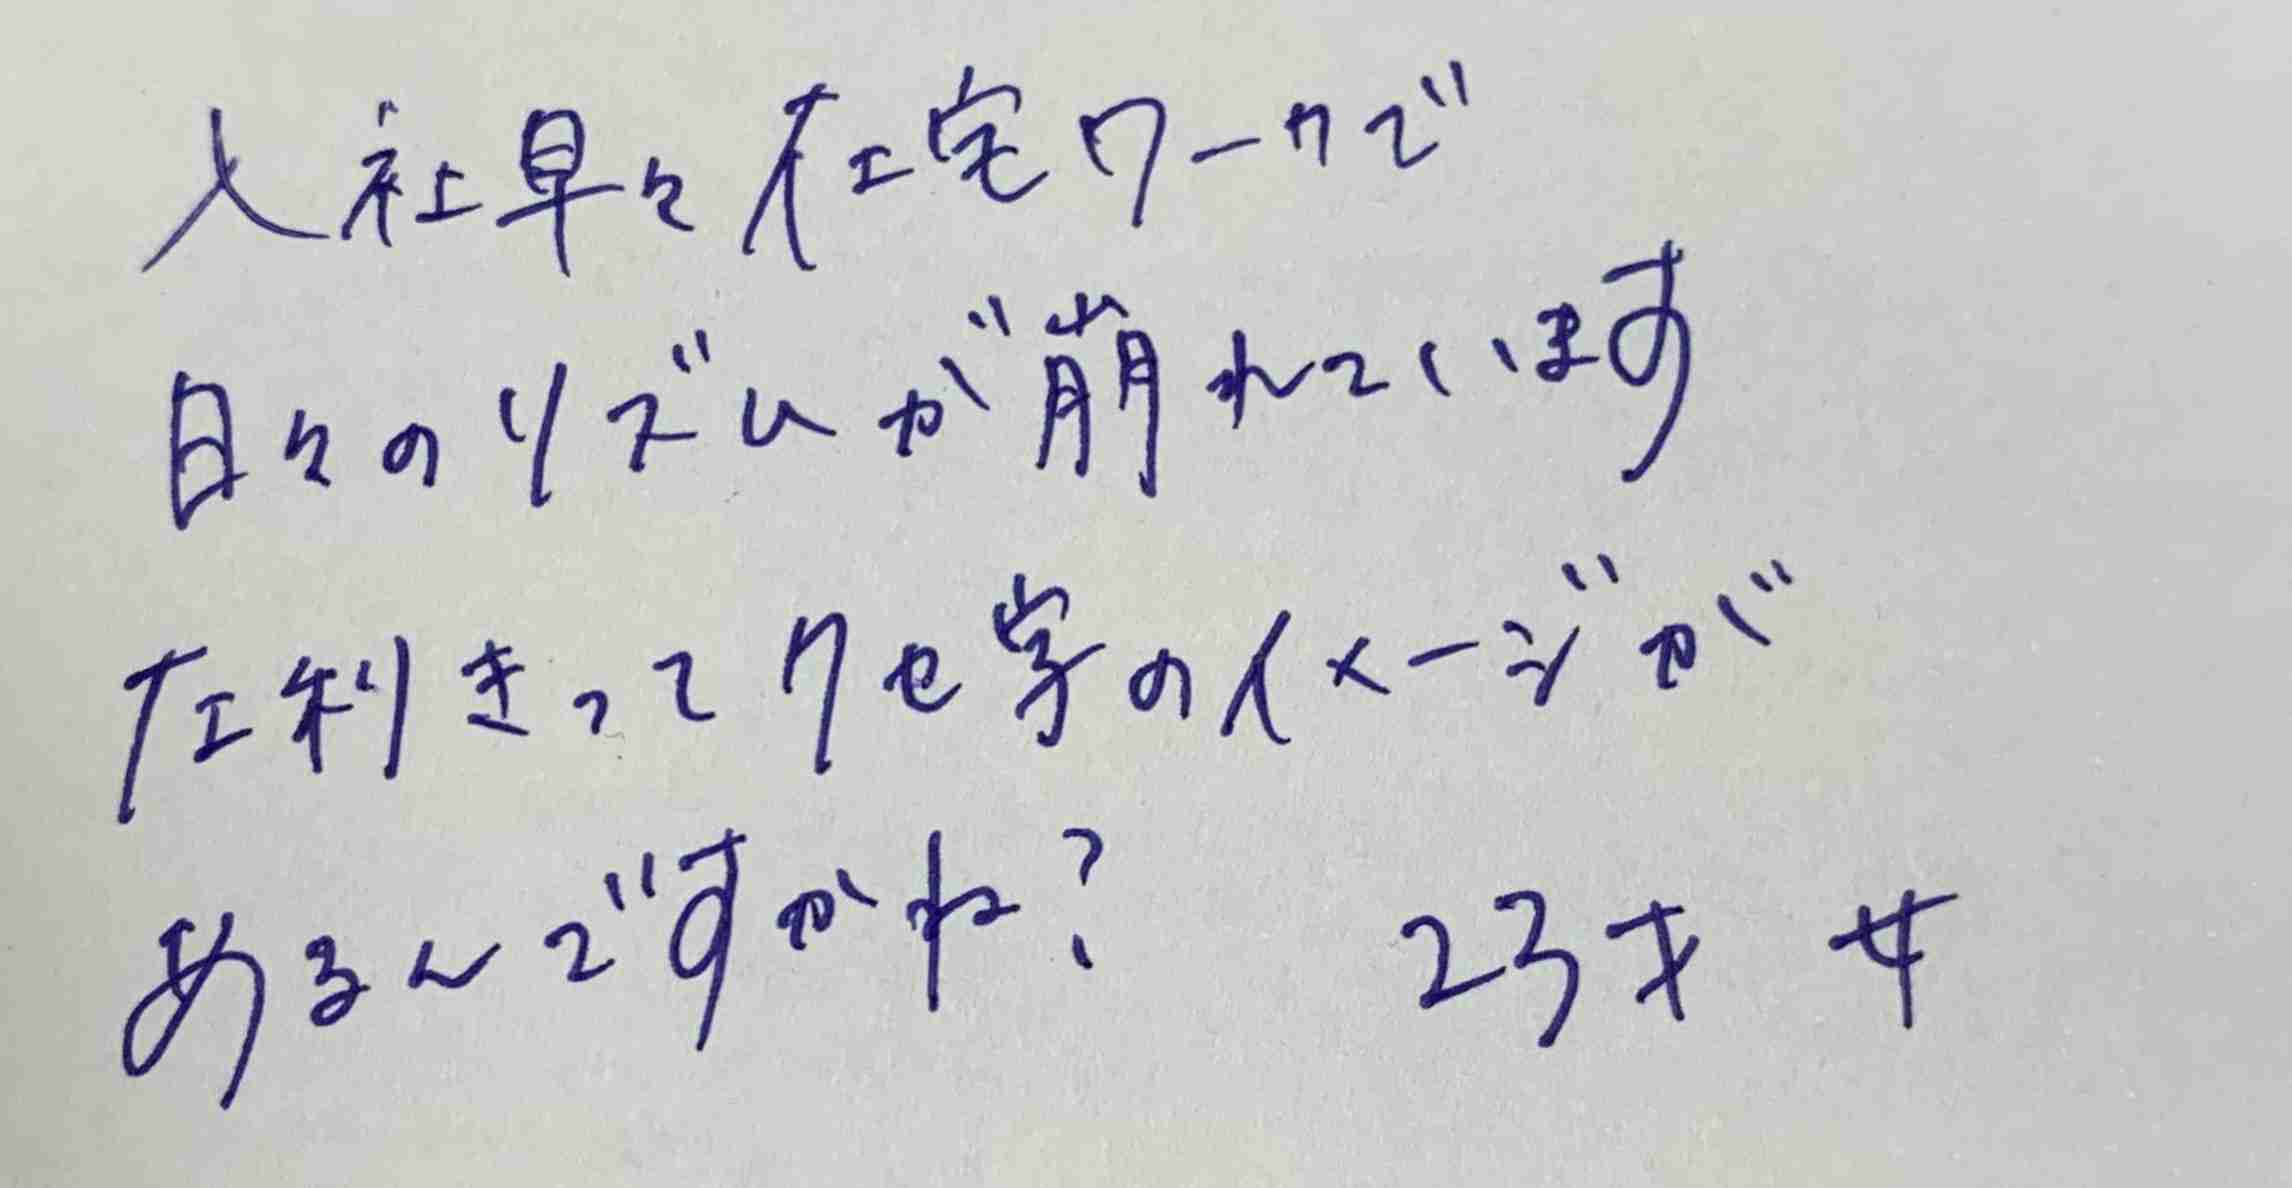 入社早々在宅ワークで
日々のリズムが崩れています
左利きってクセ字のイメージが
あるんですかね?
23才 女